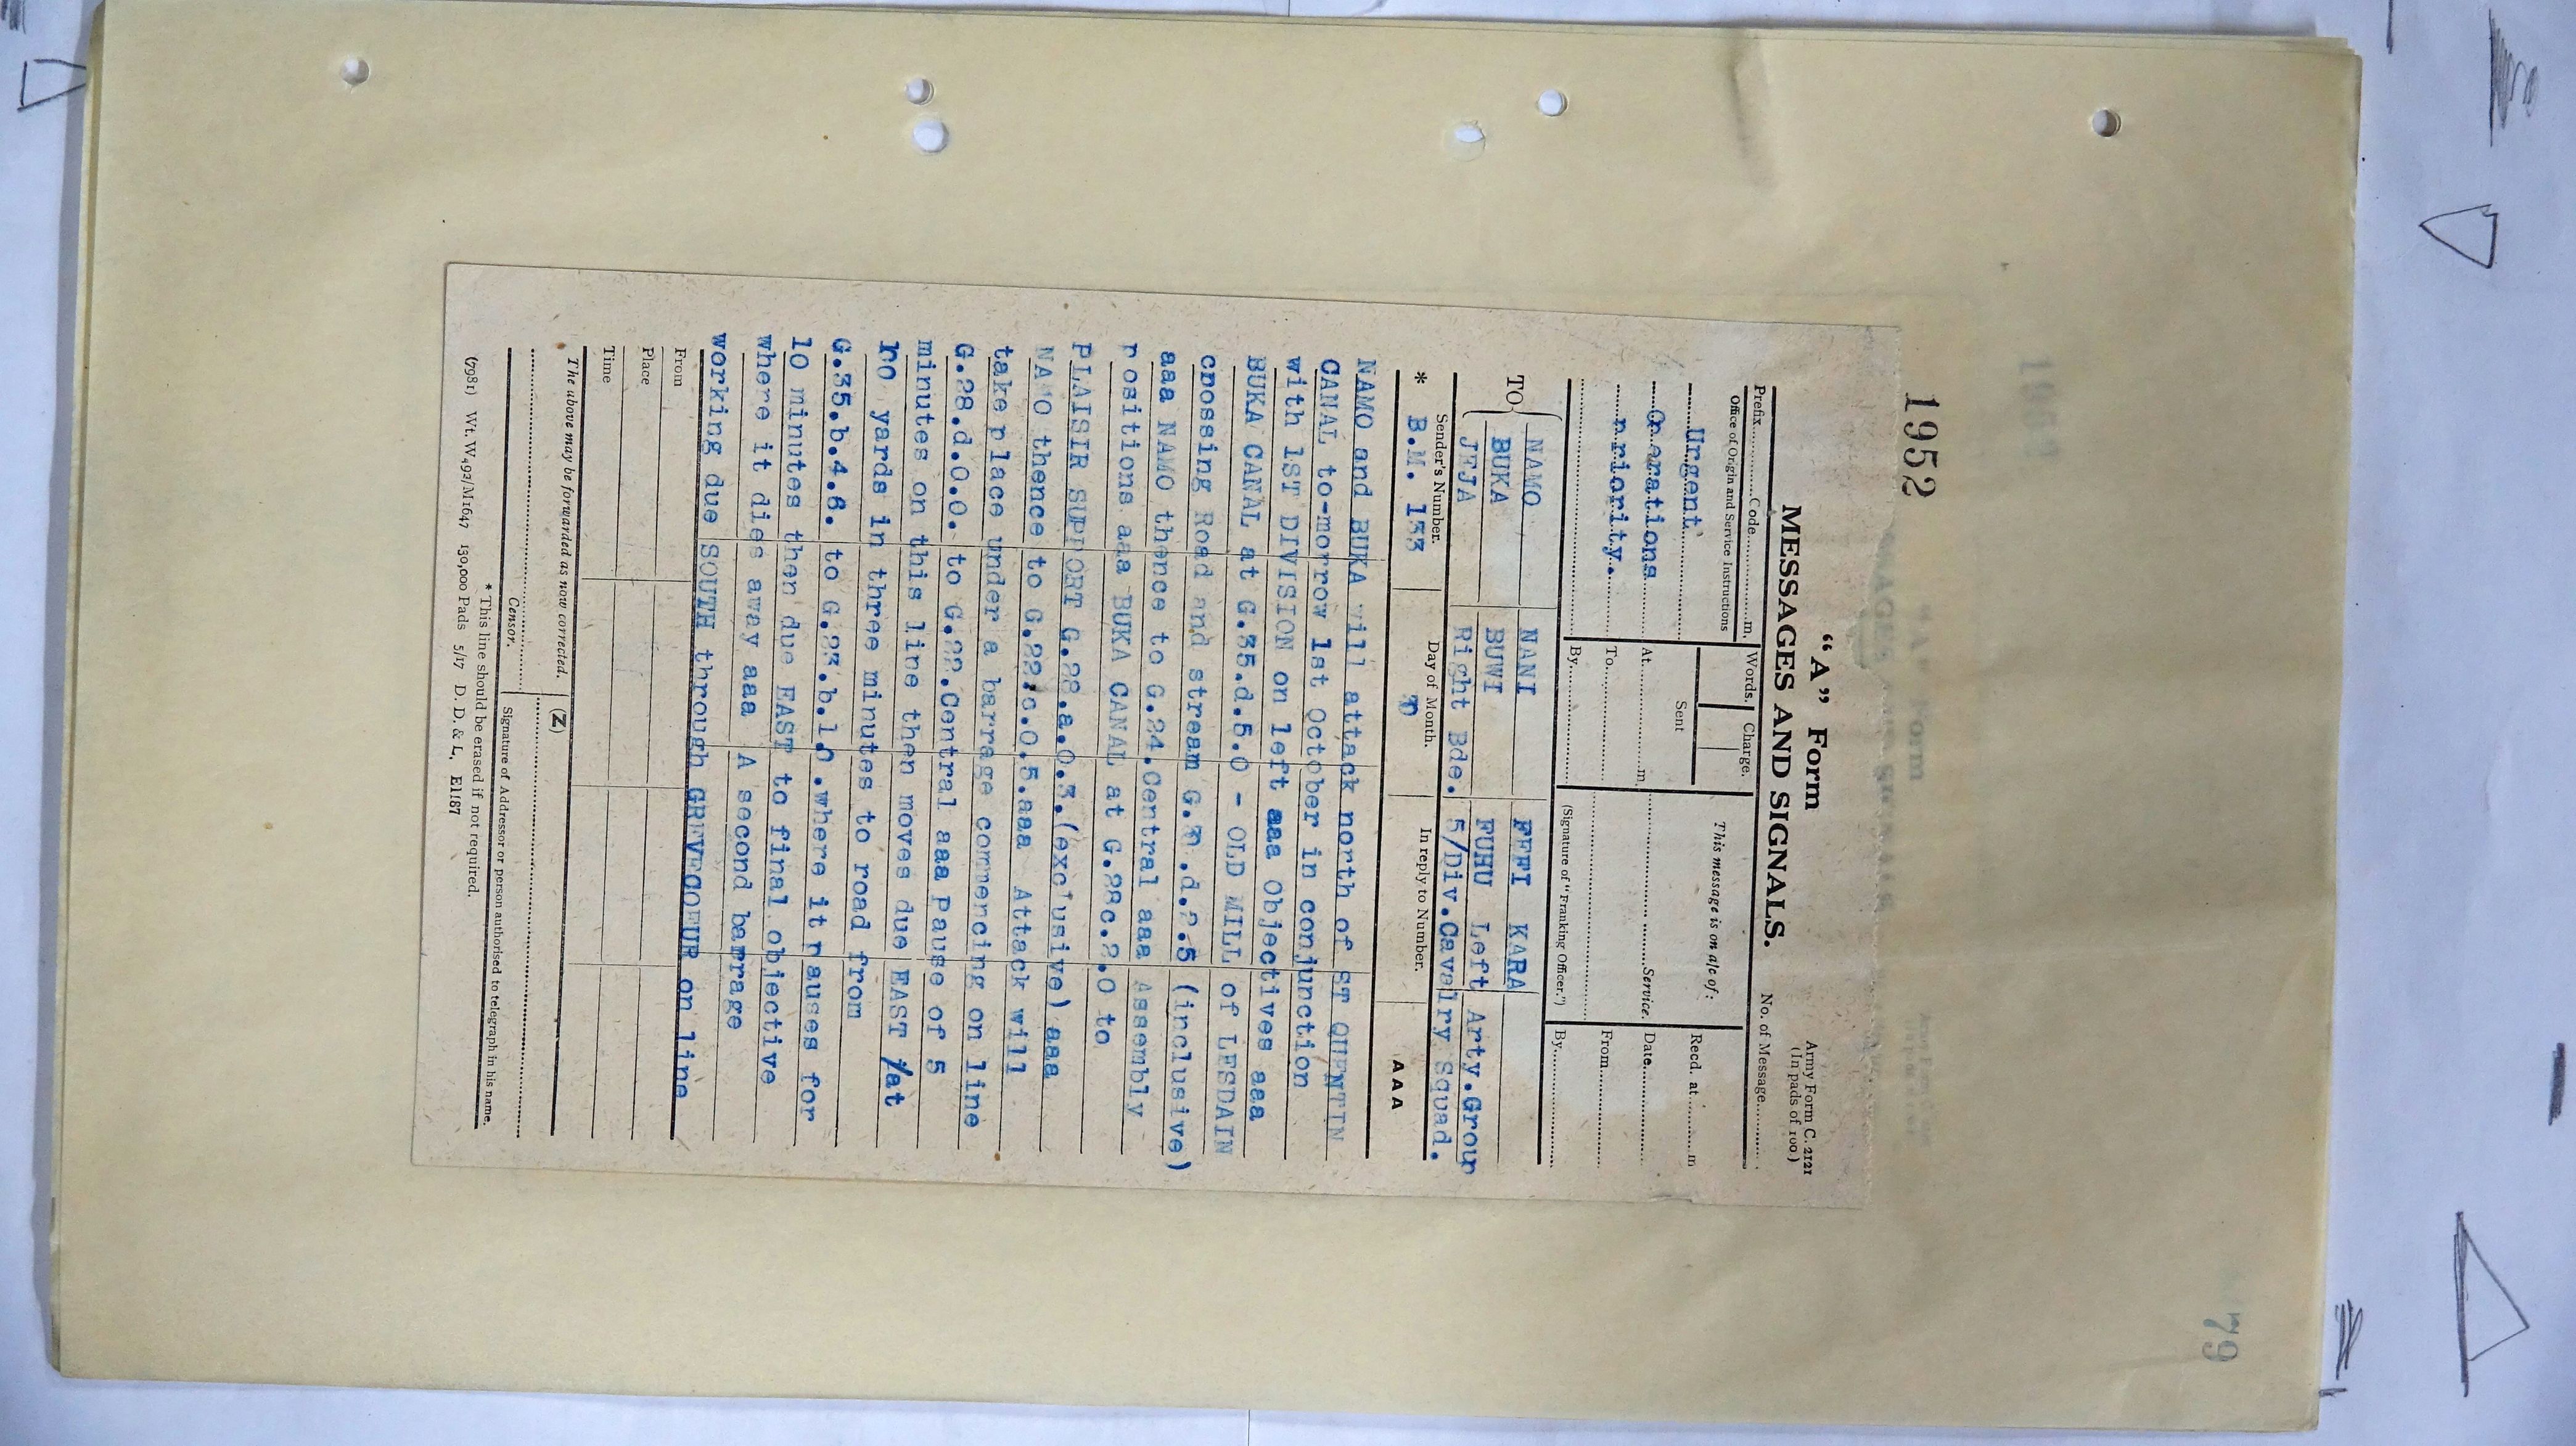 1952
79
"A" Form
Army Form C. 2121
(In pads of 100.)
MESSAGES AND SIGNALS.
No. of Message............
Prefix............Code............m.
Words.
Charge.
This message is on a/c of :
Recd. at..........m
Office of Origin and Service Instructions
Urgent
Sent
Operations
At............m.
............Service.
Date............
priority.
To............
From............
By............
(Signature of "Franking Officer.")
By............
TO
NAMO NANI FEFI KARA
BUKA BUWI FUHU Left Arty.Group
JEJA Right Bde. 5/Div.Cavalry Squad.
Sender's Number.
Day of Month.
In reply to Number.
* B.M. 133
30
AAA
NAMO and BUKA will attack north of ST QUENTIN
CANAL to-morrow 1st October in conjunction
with 1ST DIVISION on left aaa Objectives aaa
BUKA CANAL at G.35.d.5.0 - OLD MILL of LESDAIN
crossing Road and stream G.30.d.2.5 (inclusive)
aaa NAMO thence to G.24.Central aaa Assembly
positions aaa BUKA CANAL at G.28c.2.0 to
PLAISIR SUPPORT G.28.a.0.3.(exclusive) aaa
NAMO thence to G.22.c.0.5.aaa Attack will
take place under a barrage commencing on line
G.28.d.0.0. to G.22.Central aaa Pause of 5
minutes on this line then moves due EAST /at
100 yards in three minutes to road from
G.35.b.4.6. to G.23.b.1.0.where it pauses for
10 minutes then due EAST to final objective
where it dies away aaa A second barrage
working due SOUTH through CREVECOEUR on line
From
Place
Time
The above may be forwarded as now corrected.
(Z)
Censor.
Signature of Addressor or person authorised to telegraph in his name.
* This line should be erased if not required.
(7981) Wt. W492/M1647 130,000 Pads 5/17 D. D. & L. E1187